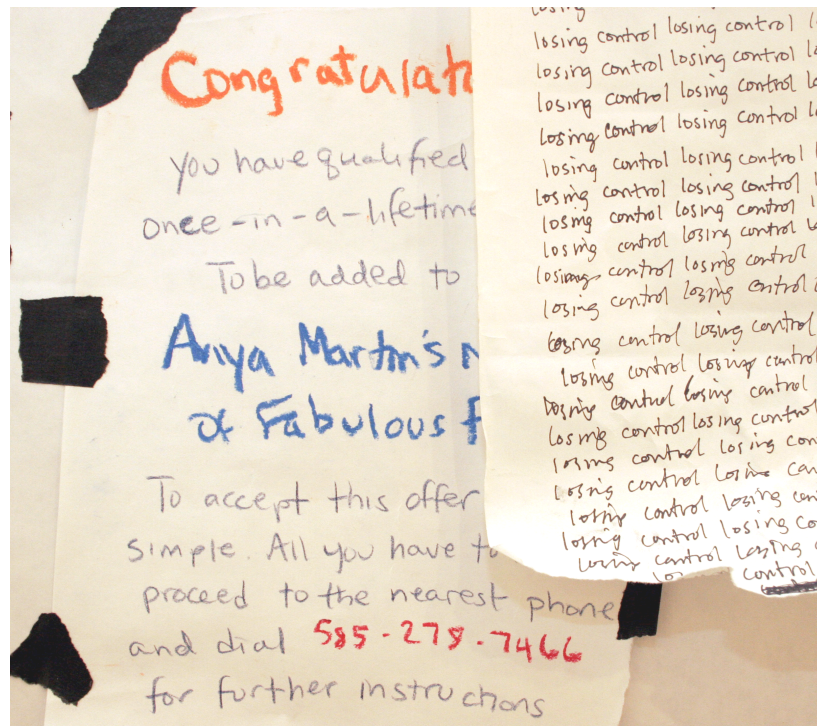 Congratulat
you have qualified
once-in-a-lifetime
To be added to
Anya Martin's
of Fabulous F
To accept this offer
simple. All you have to
proceed to the nearest phone
and dial 585-278-7466
for further instructions
losing
losing control losing control
losing control losing control lo
losing control losing control lo
losing control losing control
losing control losing control l
losing control losing control
losing control losing control
losing control losing control
losing control losing control
losing control losing control
losing control losing control
losing control losing control
losing control losing control
losing control losing control
losing control losing con
losing control losing con
losing control losing con
losing control losing co
losing control losing
control